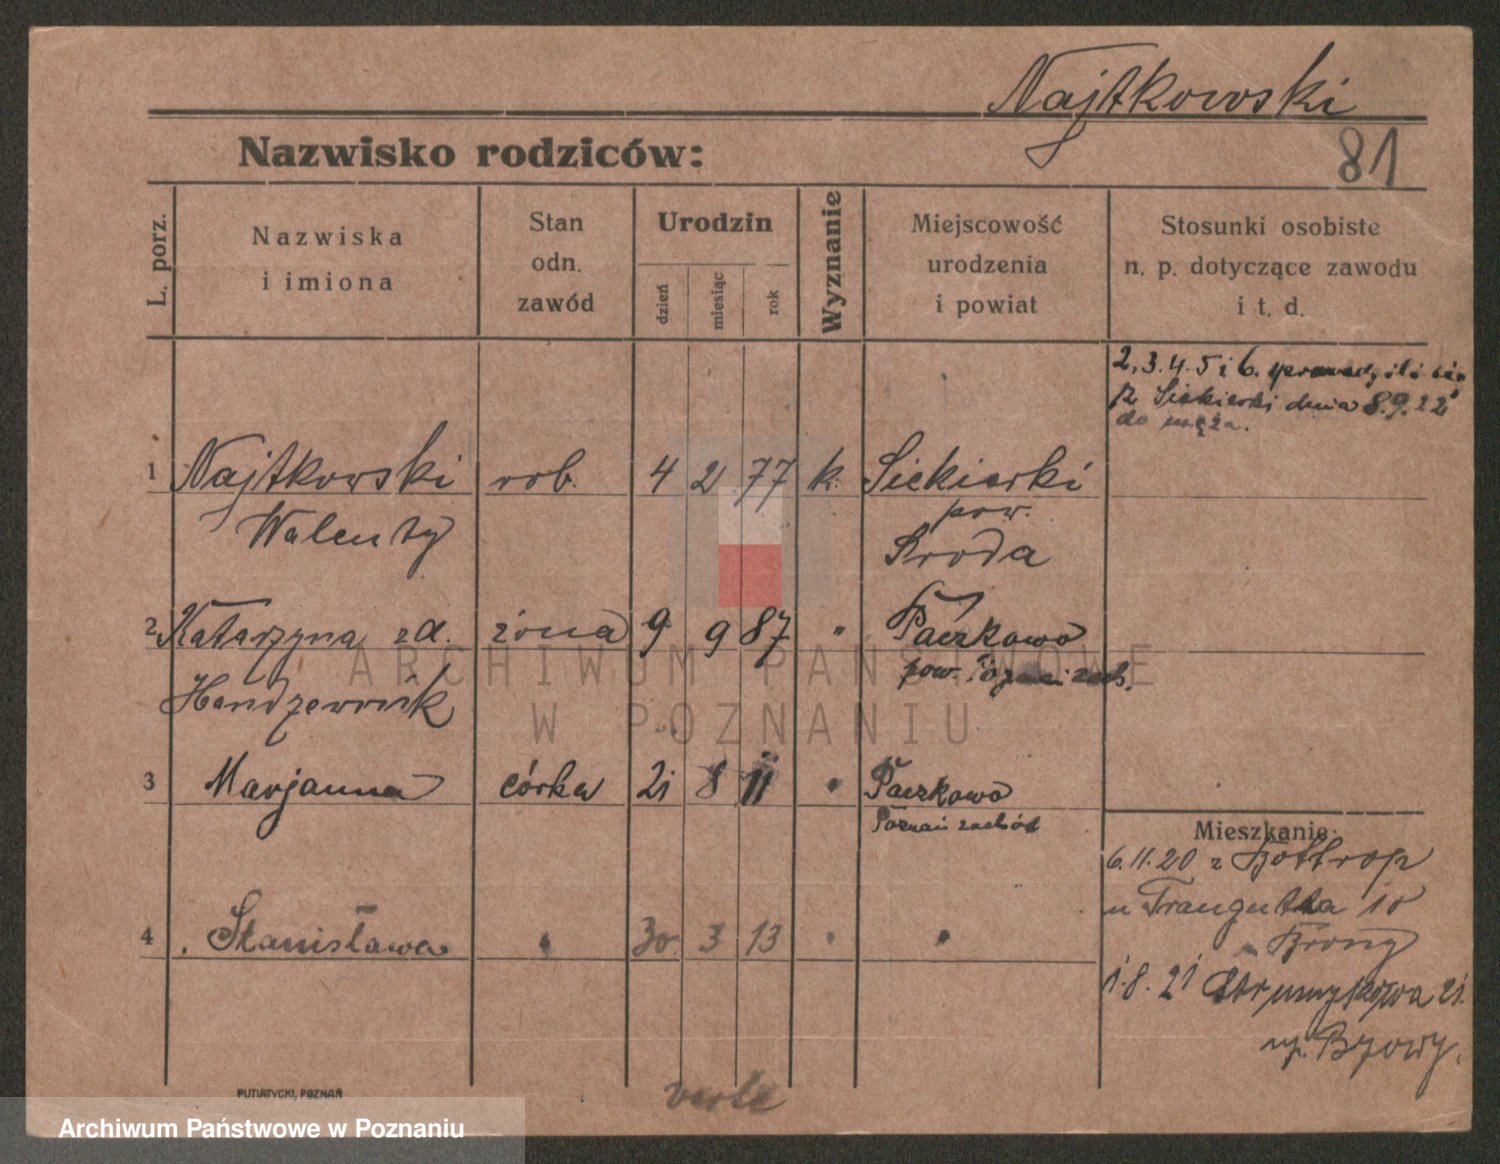 Najtkowski
81
Nazwisko rodziców:
L. porz.
Nazwiska
i imiona
Stan
odn.
zawód
Urodzin
dzień
miesiąc
rok
Wyznanie
Miejscowość
urodzenia
i powiat
Stosunki osobiste
n. p. dotyczące zawodu
i t. d.
2, 3. 4. 5 i 6. sprowadzili się
z Siekierki dnia 8.9.22
do męża.
1 Najtkowski rob. 4 2 77 k. Siekierki
Walenty pow.
Środa
2 Katarzyna zd. żona 9 9 87 " Paczkowo
pow. zach.
3 Marjanna córka 21 8 11 " Paczkowo
Poznań zachód
4 Stanisława " 30. 3 13 " "
Mieszkanie:
6.11.20 z Bottrop
u 10
1.8.21 21.
verte
PUTIATYCKI, POZNAŃ
ARCHIWUM PAŃSTWOWE
W POZNANIU
Archiwum Państwowe w Poznaniu